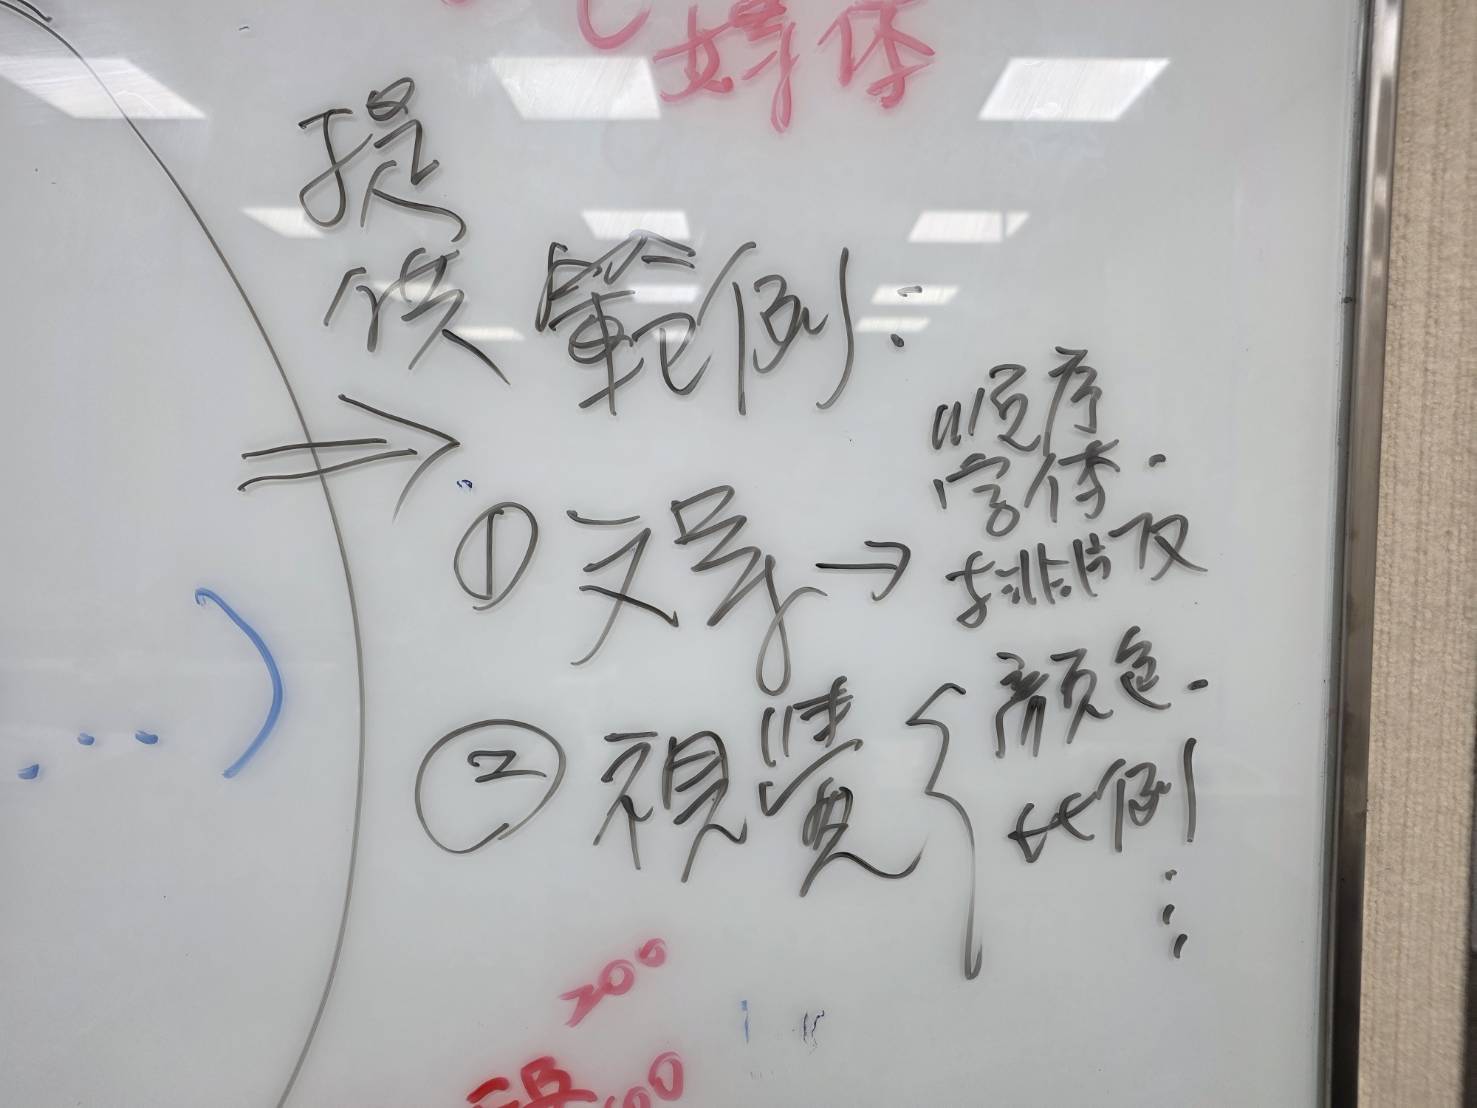 媒体
提供範例：
① 文字→
順序
字体.
排版及
② 視覺{
顏色.
比例
⋮
200
00